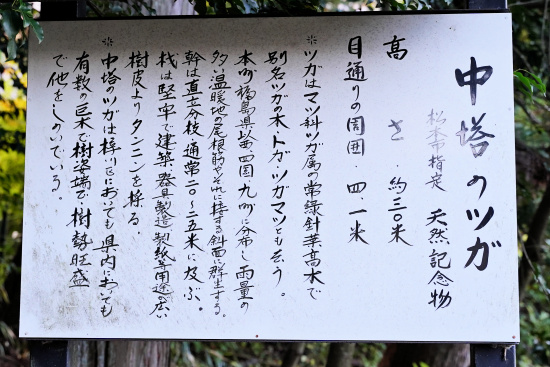 中塔のツガ
松本市指定 天然記念物
高さ・約三〇米
目通りの周囲・四・一米
※ツガはマツ科ツガ属の常緑針葉高木で
別名ツガの木・トガ・ツガマツとも云う。
本州福島県以西四国・九州に分布し雨量の
多い温暖地の尾根筋やそれに接する斜面に群生する。
幹は直立分枝通常二〇～二五米に及ぶ。
材は堅牢で建築・器具製造・製紙等用途が広い
樹皮よりタンニンを採る。
※中塔のツガは梓川区においても県内においても
有数の巨木で樹姿端正で樹勢旺盛
で他をしのいでいる。